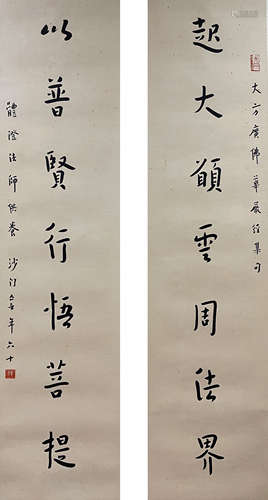 大方廣佛華嚴經集句
起大願雲周法界
以普賢行悟菩提
體澄法師供養 沙門一音年六十